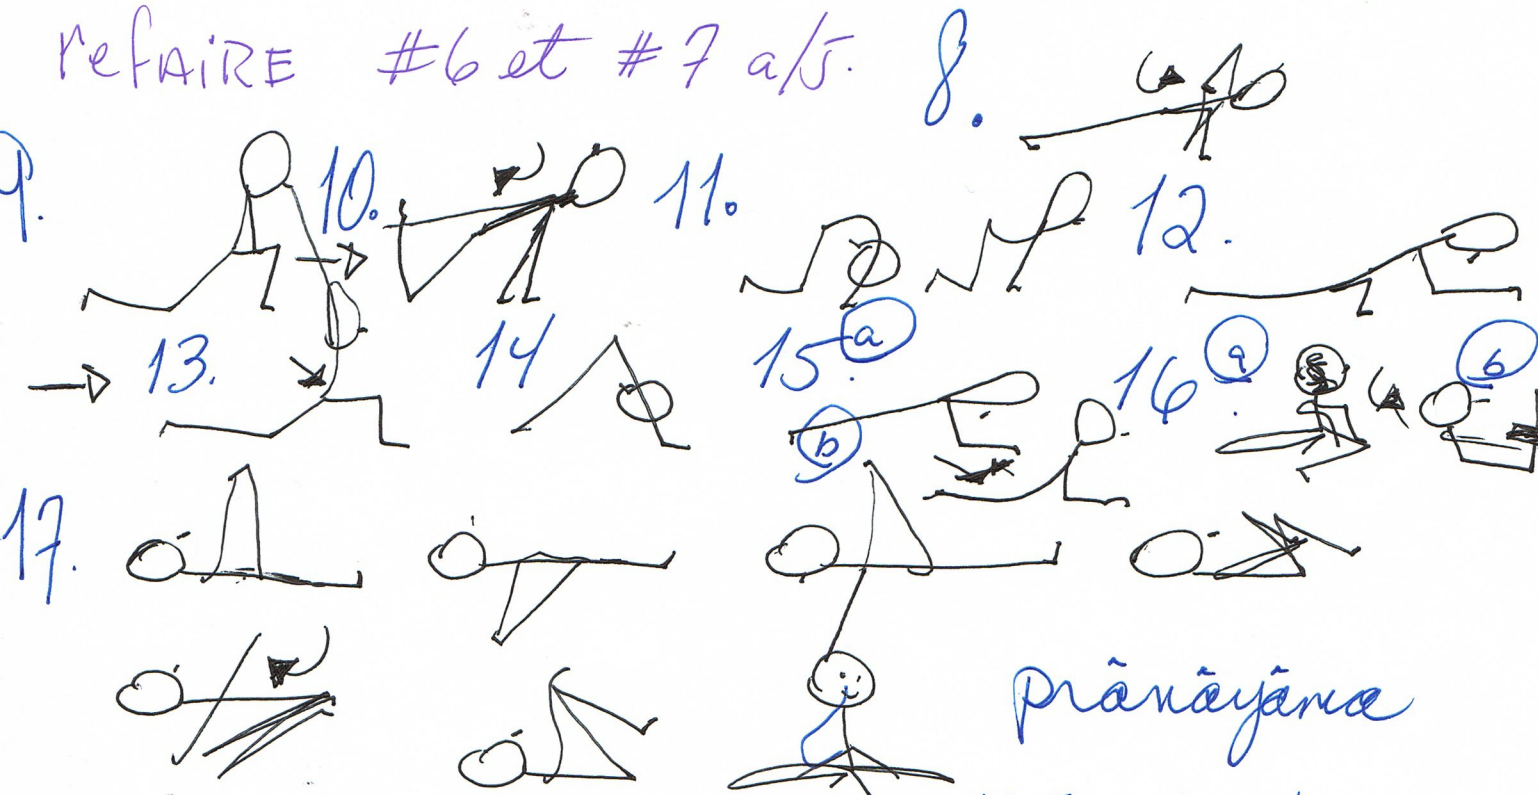 refAiRE #6 et #7 a/5.
8.
9.
10.
11.
12.
13.
14
15. a
b
16. a
b
17.
prânâyâma